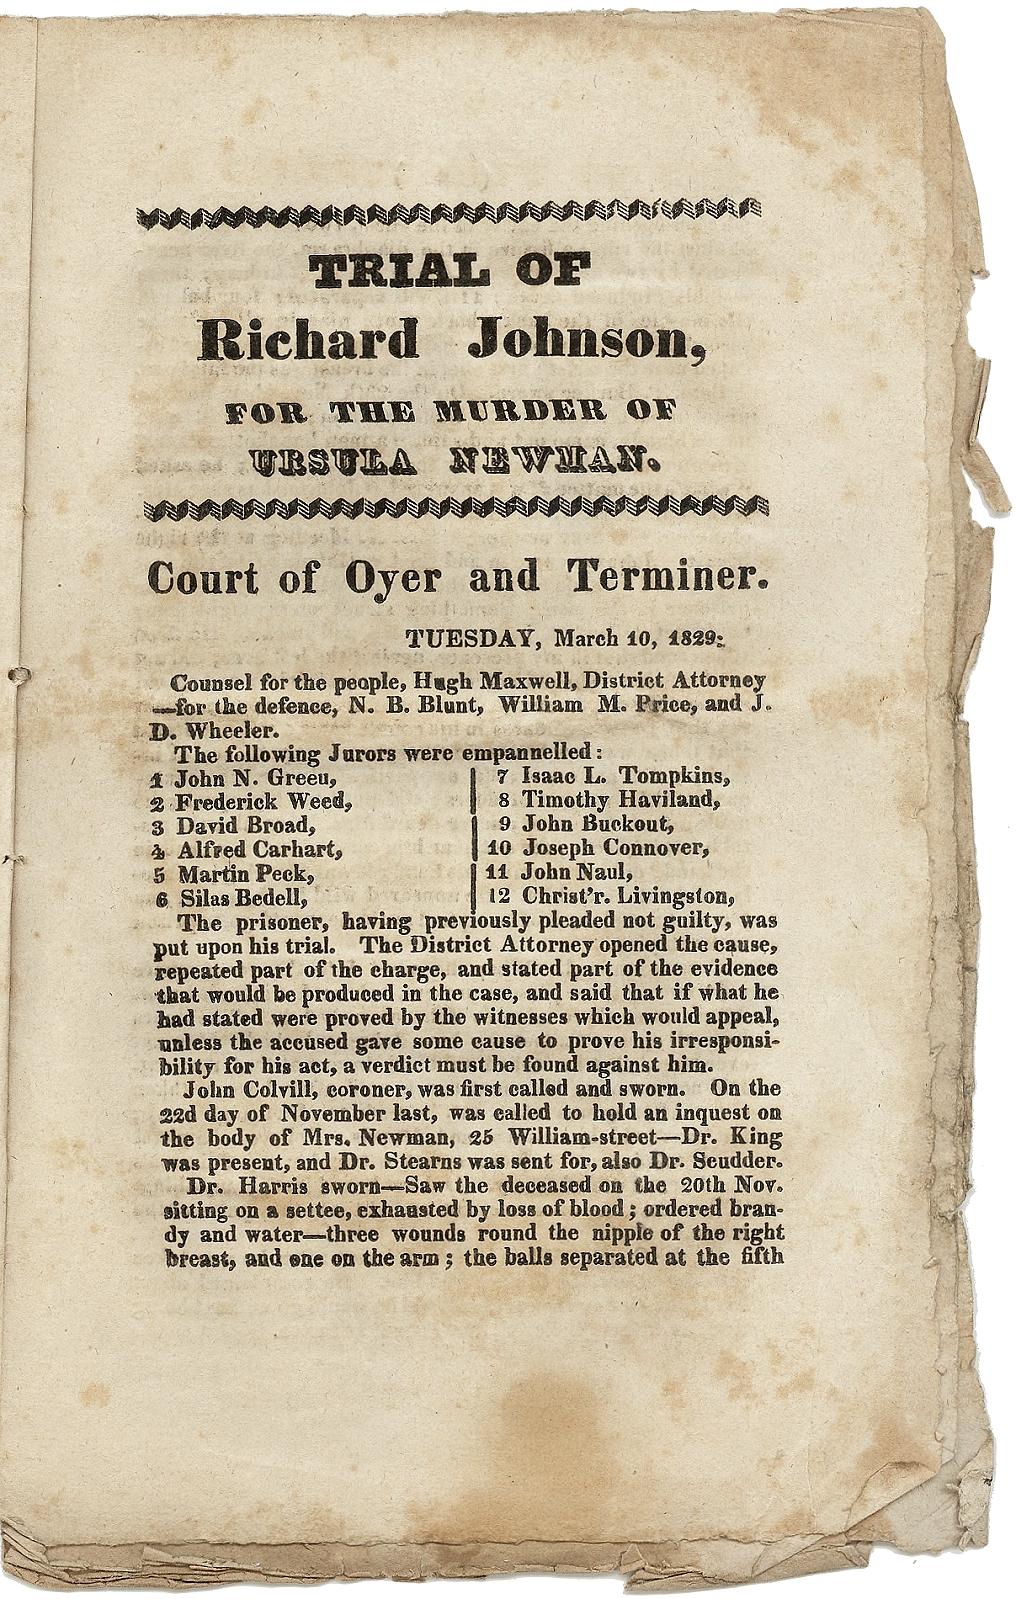 TRIAL OF
Richard Johnson,
FOR THE MURDER OF
URSULA NEWMAN.
Court of Oyer and Terminer.
TUESDAY, March 10, 1829.
Counsel for the people, Hugh Maxwell, District Attorney
—for the defence, N. B. Blunt, William M. Price, and J.
D. Wheeler.
The following Jurors were empannelled:
1 John N. Greeu,
2 Frederick Weed,
3 David Broad,
4 Alfred Carhart,
5 Martin Peck,
6 Silas Bedell,
7 Isaac L. Tompkins,
8 Timothy Haviland,
9 John Buckout,
10 Joseph Connover,
11 John Naul,
12 Christ'r. Livingston,
The prisoner, having previously pleaded not guilty, was
put upon his trial. The District Attorney opened the cause,
repeated part of the charge, and stated part of the evidence
that would be produced in the case, and said that if what he
had stated were proved by the witnesses which would appeal,
unless the accused gave some cause to prove his irresponsi-
bility for his act, a verdict must be found against him.
John Colvill, coroner, was first called and sworn. On the
22d day of November last, was called to hold an inquest on
the body of Mrs. Newman, 25 William-street—Dr. King
was present, and Dr. Stearns was sent for, also Dr. Scudder.
Dr. Harris sworn—Saw the deceased on the 20th Nov.
sitting on a settee, exhausted by loss of blood; ordered bran-
dy and water—three wounds round the nipple of the right
breast, and one on the arm; the balls separated at the fifth